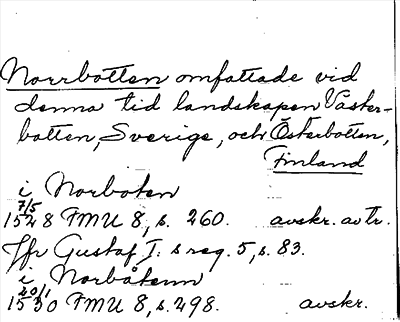 Norrbotten omfattade vid
denna tid landskapen Väster-
botten, Sverige, och Österbotten,
Finland
i Norboten
7/5
1528 FMU 8, s. 260. avskr. av tr.
Jfr Gustaf I:s reg. 5, s. 83.
i Norbåtenn
20/1
1530 FMU 8, s. 298. avskr.